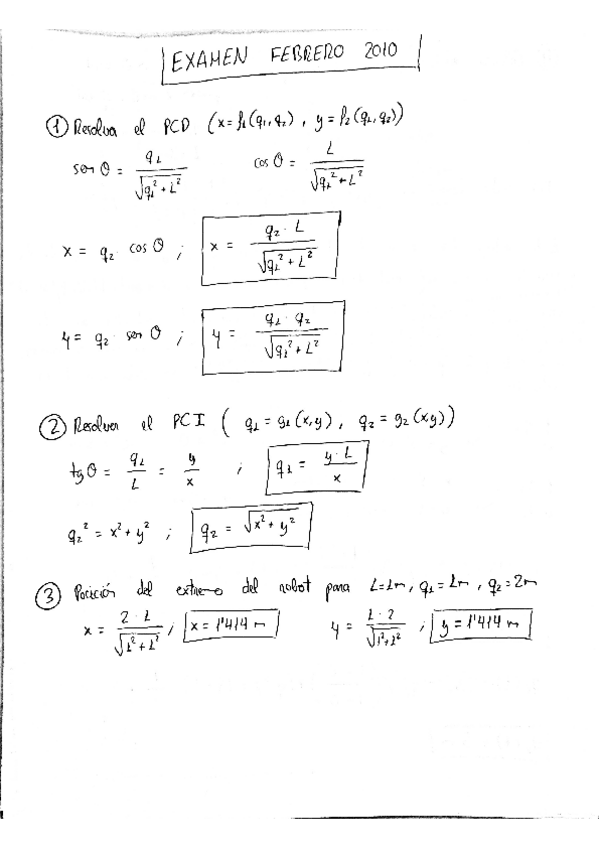 EXAMEN FEBRERO 2010
① Resolver el PCD (x = f₁(q₁,q₂) , y = f₂(q₁,q₂))
sen θ = q₁ / √(q₁² + L²)    cos θ = L / √(q₁² + L²)
x = q₂ · cos θ ; x = q₂ · L / √(q₁² + L²)
y = q₂ · sen θ ; y = q₁ · q₂ / √(q₁² + L²)
② Resolver el PCI ( q₁ = g₁(x,y) , q₂ = g₂(x,y))
tg θ = q₁ / L = y / x ; q₁ = y · L / x
q₂² = x² + y² ; q₂ = √(x² + y²)
③ Posición del extremo del robot para L=1m, q₁=1m, q₂=2m
x = 2 · 1 / √(1² + 1²) ; x = 1'414 m    y = 1 · 2 / √(1² + 1²) ; y = 1'414 m